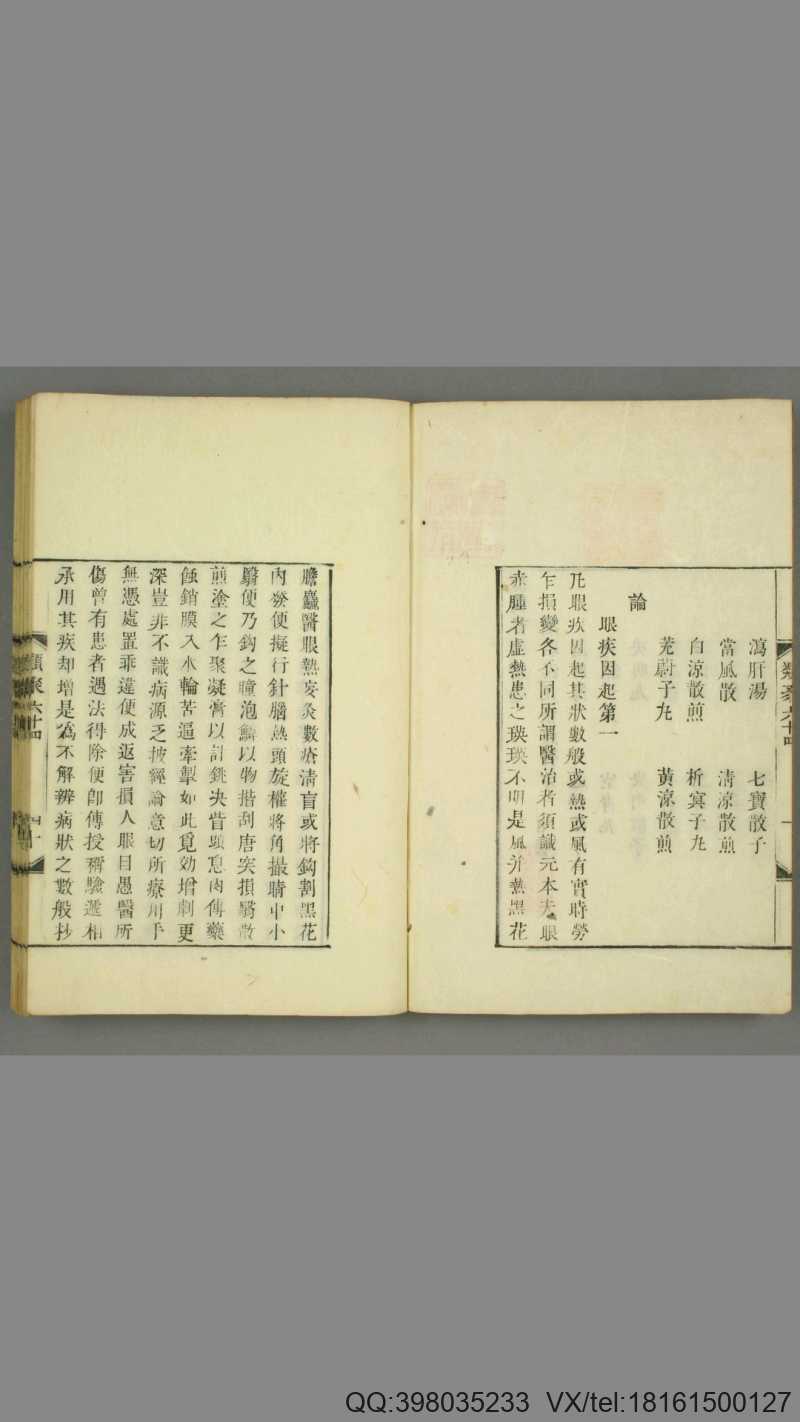 類聚六十四
瀉肝湯 七寶散子
當風散 清凉散煎
白凉散煎 析蓂子𠃵
茺蔚子𠃵 黃凉散煎
論
眼疾因起第一
凡眼疾因起其狀數般或熱或風有實時勞
乍損變各不同所謂醫治者須識元本夫眼
赤腫者虛熱患之瑛瑛不明是風幷熱黑花
膽麤醫眼熱妄灸數瘡清盲或將鈎割黑花
內發便擬行針腦熱頭旋權將角撮睛中小
翳便乃鈎之瞳泡鱗以物揩刮唐突損翳散
煎塗之乍聚凝膏以針銚决眥頭息肉傅藥
蝕銷膜入水輪苦逼牽掣如此覓効增劇更
深豈非不識病源乏披經論意切所療用手
無憑處置乖違便成返害損人眼目愚醫所
傷曾有患者遇法得除便卽傳授稱驗遞相
承用其疾却增是爲不解辨病狀之數般抄
類聚六十四
四十
QQ:398035233 VX/tel:18161500127